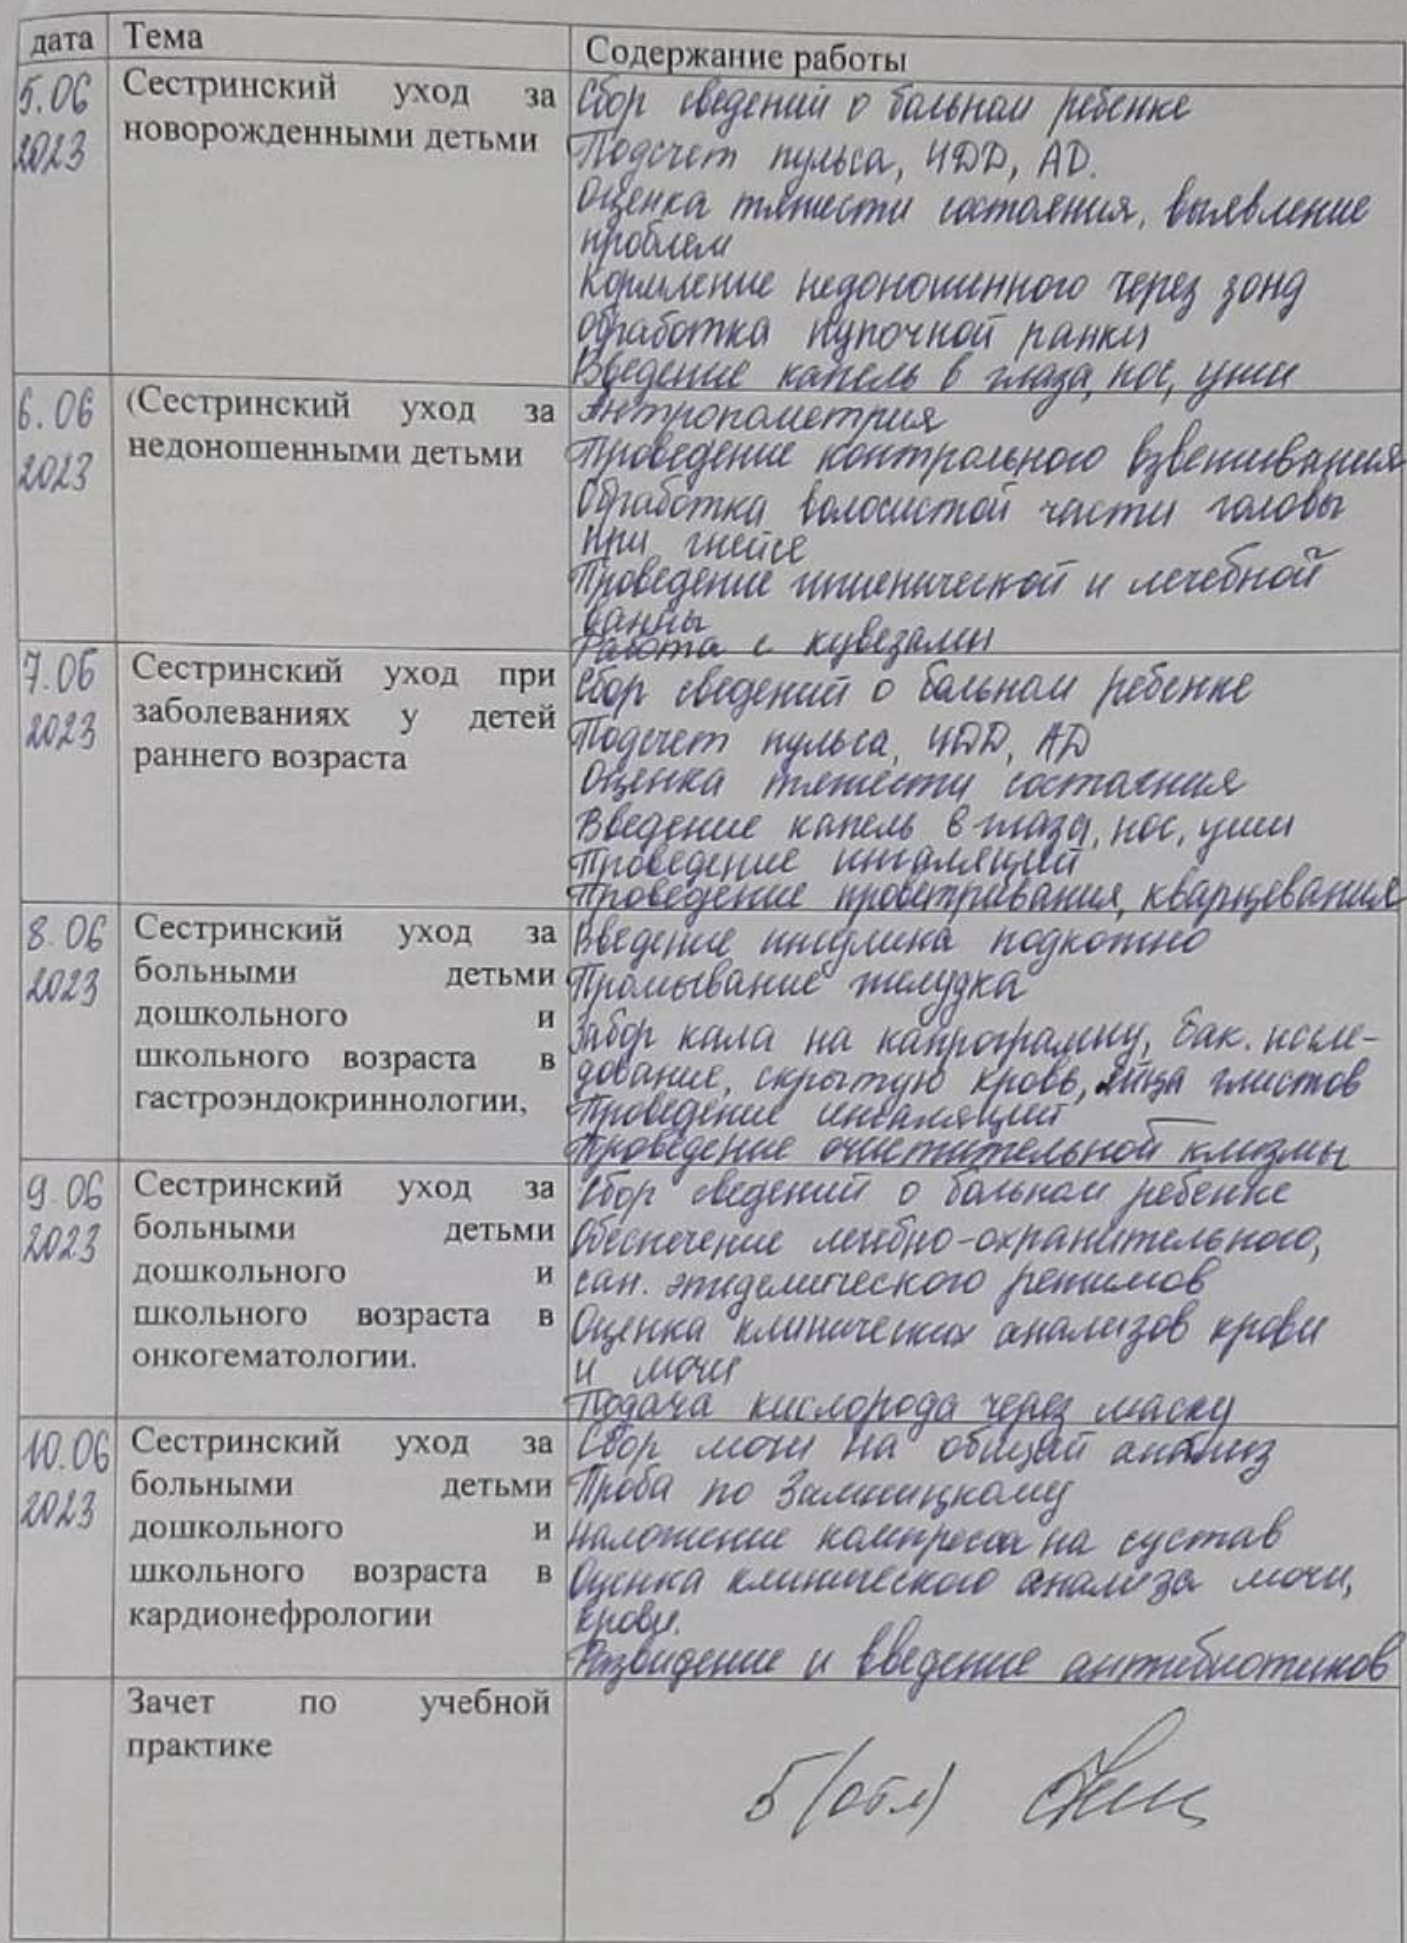 дата Тема Содержание работы
5.06 2023
Сестринский уход за
новорожденными детьми
Сбор сведений о больном ребенке
Подсчет пульса, ЧДД, АД.
Оценка тяжести состояния, выявление
проблем
Кормление недоношенного через зонд
Обработка пупочной ранки
Введение капель в глаза, нос, уши
6.06 2023
(Сестринский уход за
недоношенными детьми
Антропометрия
Проведение контрольного взвешивания
Обработка волосистой части головы
при гнейсе
Проведение гигиенической и лечебной
ванны
Работа с кувезами
7.06 2023
Сестринский уход при
заболеваниях у детей
раннего возраста
Сбор сведений о больном ребенке
Подсчет пульса, ЧДД, АД
Оценка тяжести состояния
Введение капель в глаза, нос, уши
Проведение ингаляций
Проведение проветривания, кварцевания
8.06 2023
Сестринский уход за
больными детьми
дошкольного и
школьного возраста в
гастроэндокриннологии,
Введение инсулина подкожно
Промывание желудка
Забор кала на капрограмму, бак. иссле-
дование, скрытую кровь, яйца глистов
Проведение ингаляций
Проведение очистительной клизмы
9.06 2023
Сестринский уход за
больными детьми
дошкольного и
школьного возраста в
онкогематологии.
Сбор сведений о больном ребенке
Обеспечение лечебно-охранительного,
сан. эпидемического режимов
Оценка клинических анализов крови
и мочи
Подача кислорода через маску
10.06 2023
Сестринский уход за
больными детьми
дошкольного и
школьного возраста в
кардионефрологии
Сбор мочи на общий анализ
Проба по Зимницкому
Наложение компресса на сустав
Оценка клинического анализа мочи,
крови.
Развидение и введение антибиотиков
Зачет по учебной
практике
5 (отл)